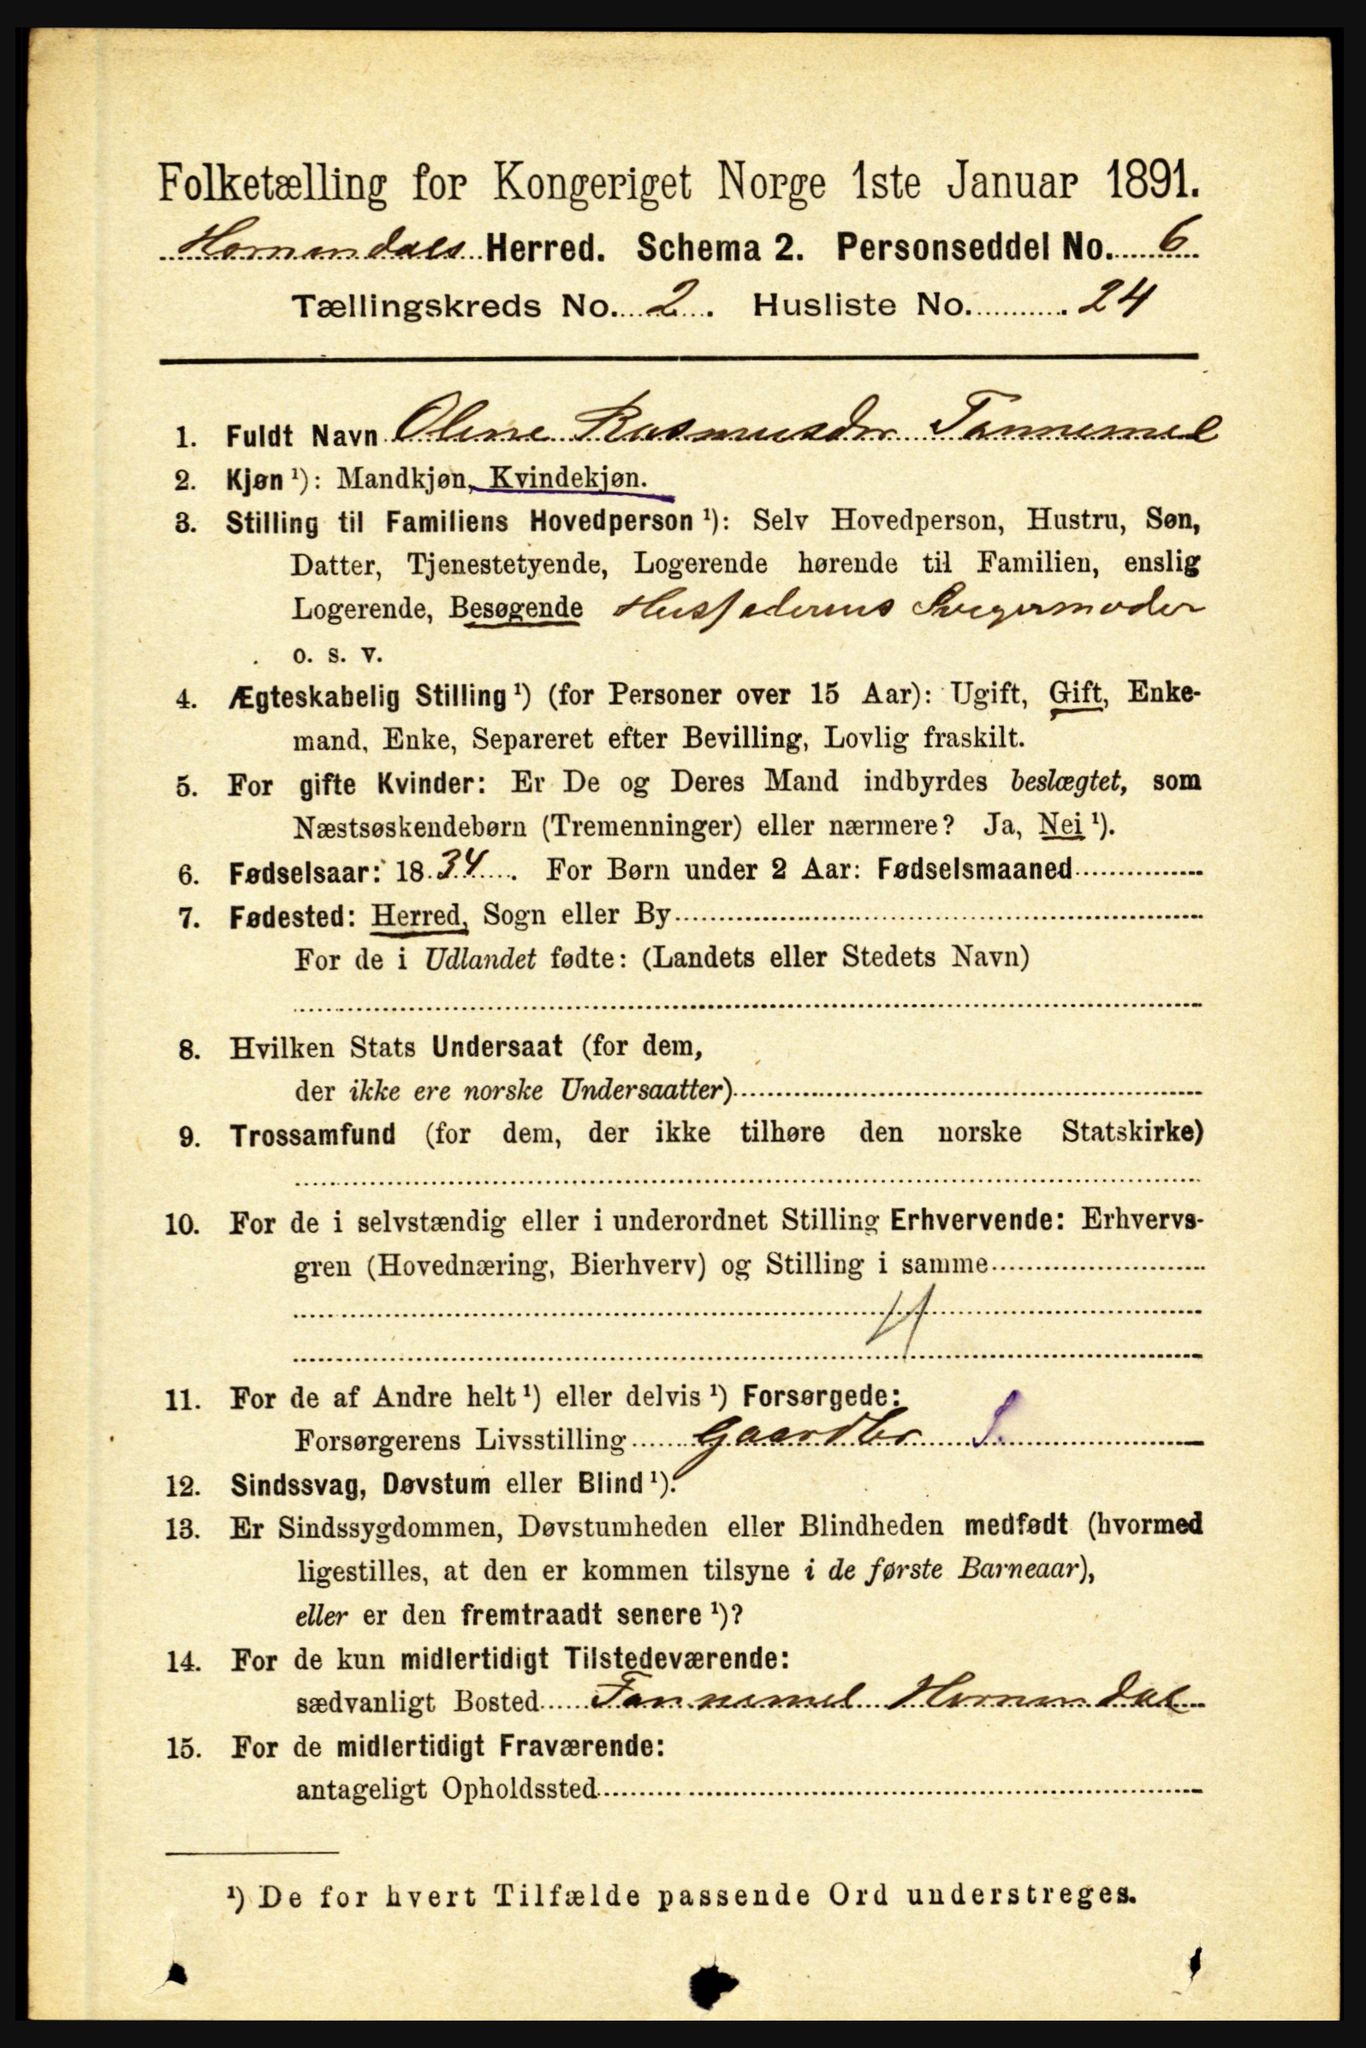 Folketælling for Kongeriget Norge 1ste Januar 1891.
Hornindals Herred. Schema 2. Personseddel No. 6
Tællingskreds No. 2. Husliste No. 24
1. Fuldt Navn Oline Rasmusdtr Tannemel
2. Kjøn ¹): Mandkjøn, Kvindekjøn.
3. Stilling til Familiens Hovedperson ¹): Selv Hovedperson, Hustru, Søn,
Datter, Tjenestetyende, Logerende hørende til Familien, enslig
Logerende, Besøgende Husfaderens Svigermoder
o. s. v.
4. Ægteskabelig Stilling ¹) (for Personer over 15 Aar): Ugift, Gift, Enke-
mand, Enke, Separeret efter Bevilling, Lovlig fraskilt.
5. For gifte Kvinder: Er De og Deres Mand indbyrdes beslægtet, som
Næstsøskendebørn (Tremenninger) eller nærmere? Ja, Nei ¹).
6. Fødselsaar: 1834. For Børn under 2 Aar: Fødselsmaaned
7. Fødested: Herred, Sogn eller By
For de i Udlandet fødte: (Landets eller Stedets Navn)
8. Hvilken Stats Undersaat (for dem,
der ikke ere norske Undersaatter)
9. Trossamfund (for dem, der ikke tilhøre den norske Statskirke)
10. For de i selvstændig eller i underordnet Stilling Erhvervende: Erhvervs-
gren (Hovednæring, Bierhverv) og Stilling i samme
11. For de af Andre helt ¹) eller delvis ¹) Forsørgede:
Forsørgerens Livsstilling Gaardbr S.
12. Sindssvag, Døvstum eller Blind ¹).
13. Er Sindssygdommen, Døvstumheden eller Blindheden medfødt (hvormed
ligestilles, at den er kommen tilsyne i de første Barneaar),
eller er den fremtraadt senere ¹)?
14. For de kun midlertidigt Tilstedeværende:
sædvanligt Bosted Tannemel Hornindal
15. For de midlertidigt Fraværende:
antageligt Opholdssted
¹) De for hvert Tilfælde passende Ord understreges.